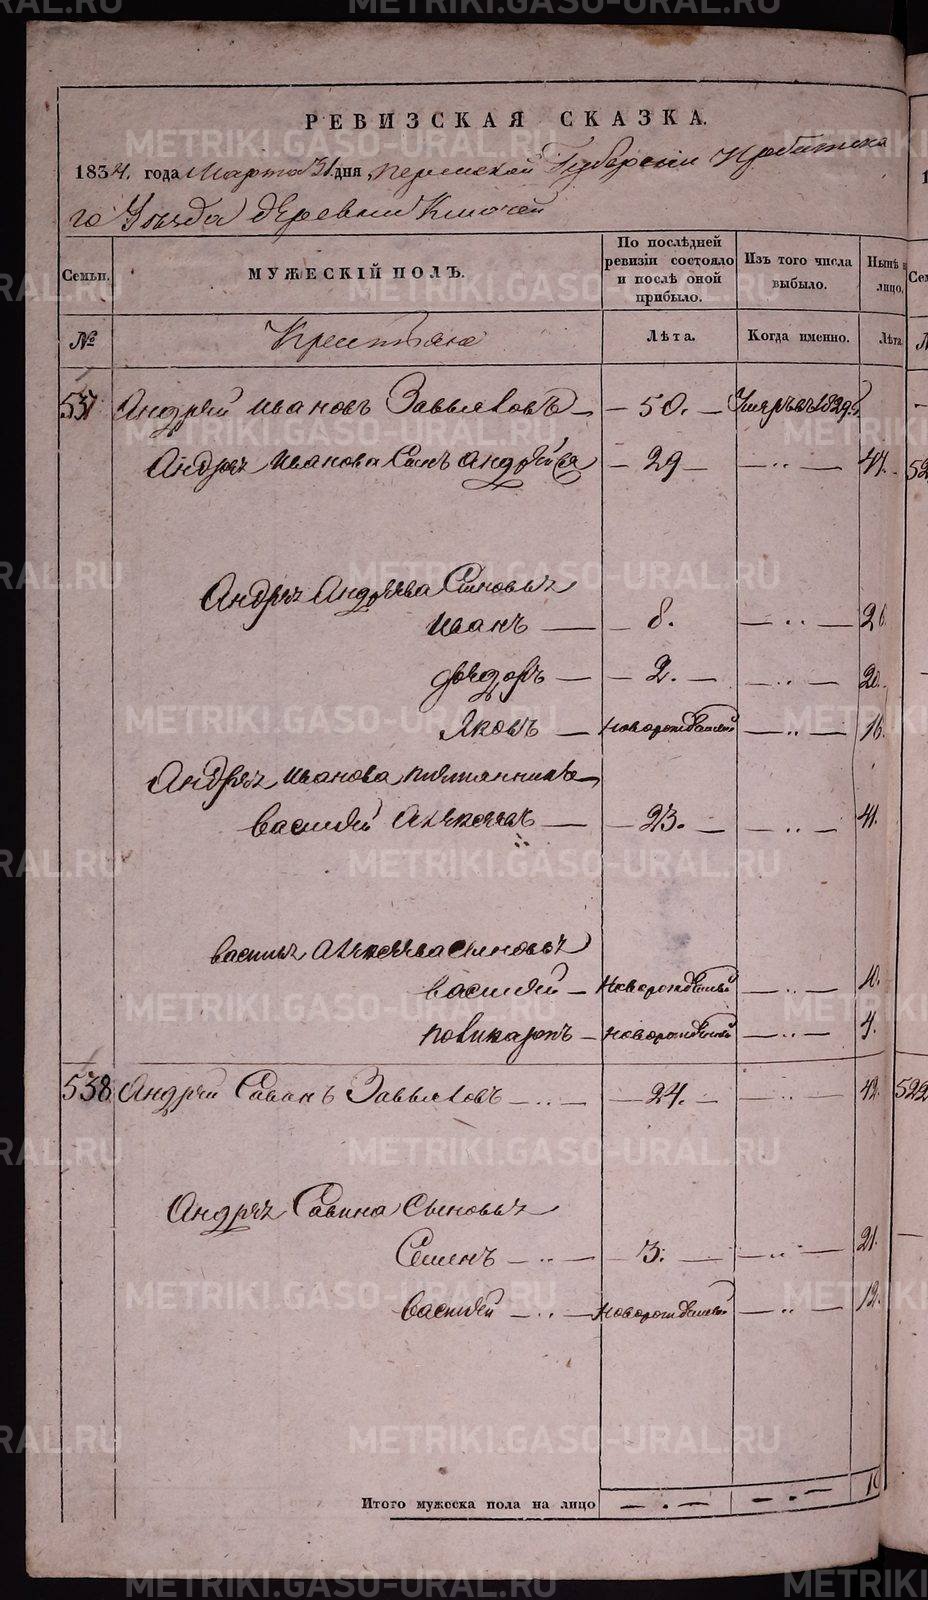 РЕВИЗСКАЯ СКАЗКА.
1834. года Марта 31. дня, Пермской Губернии Ирбитска
го Уезда деревни Ключей
Семьи. МУЖЕСКІЙ ПОЛЪ. По послѣдней ревизіи состояло и послѣ оной прибыло. Изъ того числа выбыло. Нынѣ лицо.
№ Крестьяне Лѣта. Когда именно. Лѣта.
537 Андрей Ивановъ Завьяловъ — 50. — Умеръ въ 1829
Андрея Иванова Сынъ Андрей — 29 —
Андрея Андреева Сыновья
Иванъ — 8. — 26.
Федоръ — 2. — 20.
Яковъ — Новорожденный — 16.
Андрея Иванова племянникъ
Василей Алексеевъ — 23. — 41.
Василья Алексеева сыновья
Василей — Новорожденный — 10.
Поликарпъ — Новорожденный — 4.
538 Андрей Савинъ Завьяловъ — 24. — 42. 522
Андрея Савина сыновья
Семенъ — 3. — 21.
Василей — Новорожденный — 12.
Итого мужеска пола на лицо
METRIKI.GASO-URAL.RU